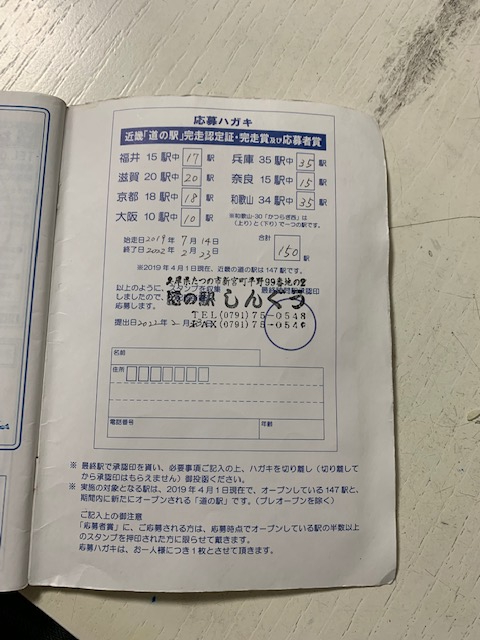 応募ハガキ
近畿「道の駅」完走認定証・完走賞及び応募者賞
福井 15 駅中 17 駅 兵庫 35 駅中 35 駅
滋賀 20 駅中 20 駅 奈良 15 駅中 15 駅
京都 18 駅中 18 駅 和歌山 34 駅中 35 駅
大阪 10 駅中 10 駅 ※和歌山-30「かつらぎ西」は(上り)と(下り)で一つの駅です。
始走日2019年 7月14日 合計 150 駅
終了日 年 2月23日
※2019年4月1日現在、近畿の道の駅は147駅です。
兵庫県たつの市新宮町平野99番地の2
以上のように、スタンプを収集
しましたので、
道の駅しんぐう
応募します。
TEL(0791)75-0548
提出日2022年2月
FAX(0791)75-054
名前
住所
電話番号 年齢
※ 最終駅で承認印を貰い、必要事項ご記入の上、ハガキを切り離し(切り離して
から承認印はもらえません)御投函ください。
※ 実施の対象となる駅は、2019年4月1日現在で、オープンしている147駅と、
期間内に新たにオープンされる「道の駅」です。(プレオープンを除く)
ご記入上の御注意
「応募者賞」に、ご応募される方は、応募時点でオープンしている駅の半数以上
のスタンプを押印された方に限らせて戴きます。
応募ハガキは、お一人様につき1枚とさせて頂きます。